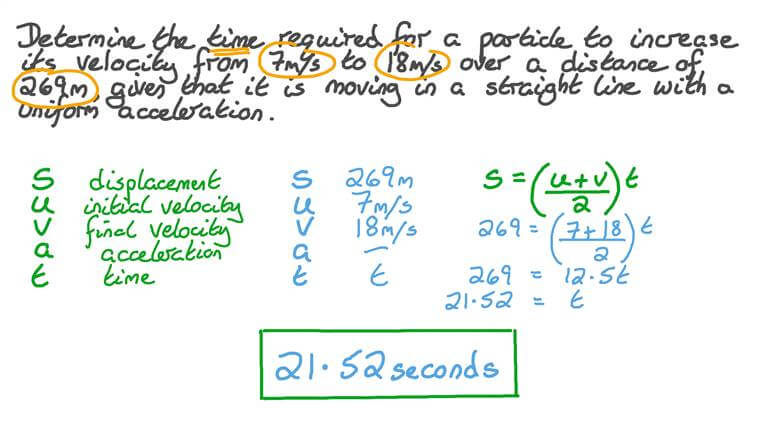 Determine the time required for a particle to increase
its velocity from 7m/s to 18m/s over a distance of
269m given that it is moving in a straight line with a
uniform acceleration.
S displacement
u initial velocity
v final velocity
a acceleration
t time
S 269m
u 7m/s
v 18m/s
a –
t t
S = (u+v/2)t
269 = (7+18/2)t
269 = 12.5t
21.52 = t
21.52 seconds